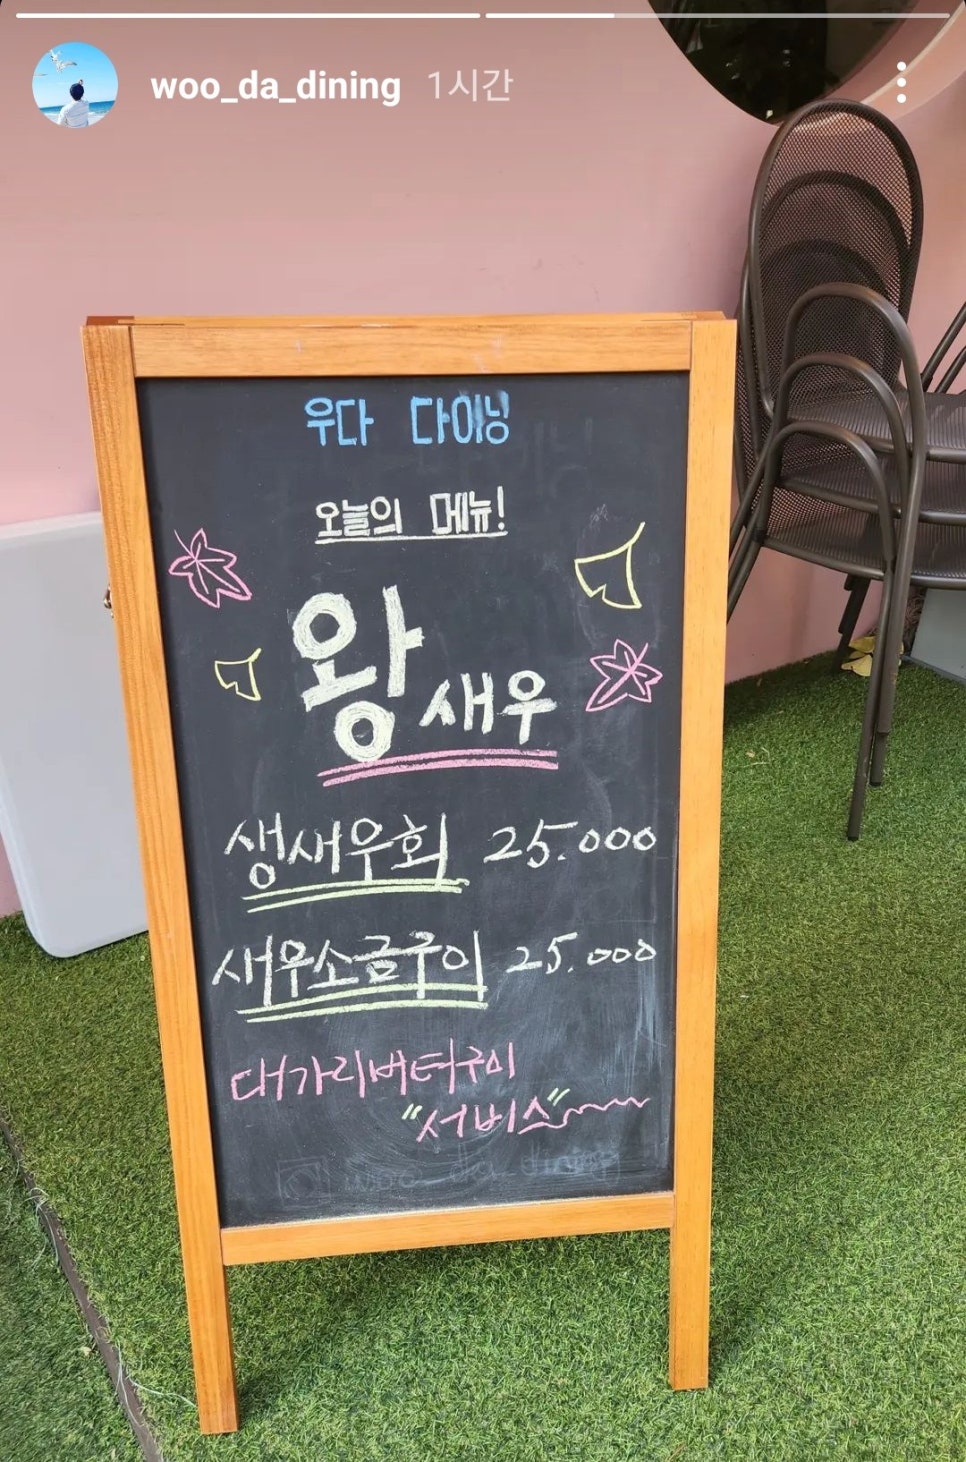 woo_da_dining 1시간
우다 다이닝
오늘의 메뉴!
왕새우
생새우회 25.000
새우소금구이 25.000
대가리버터구이
"서비스"
woo_da_dining